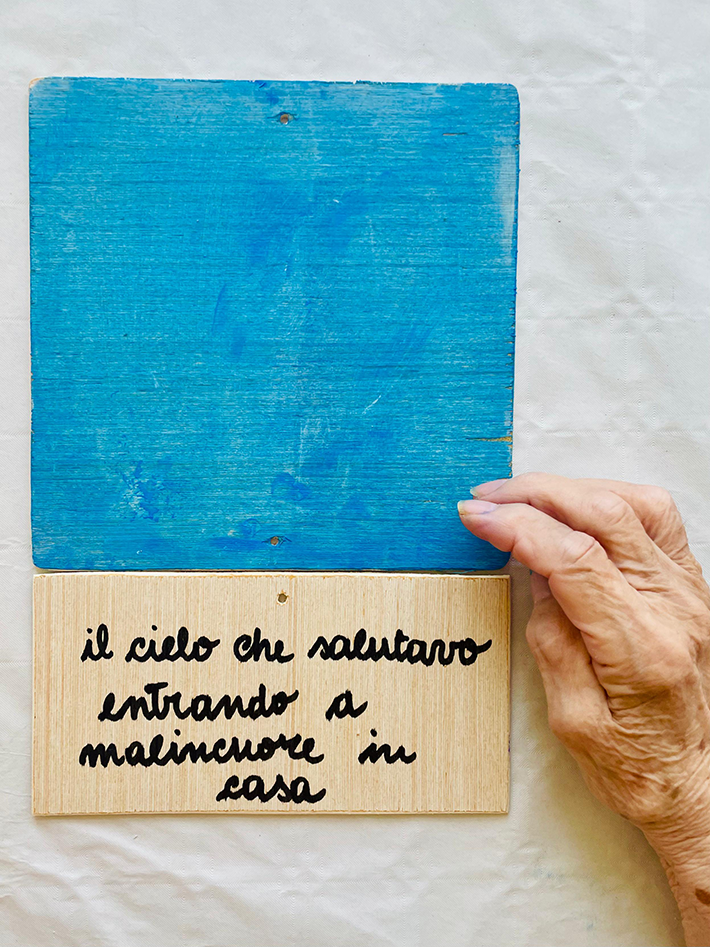 il cielo che salutavo
entrando a
malincuore in
casa